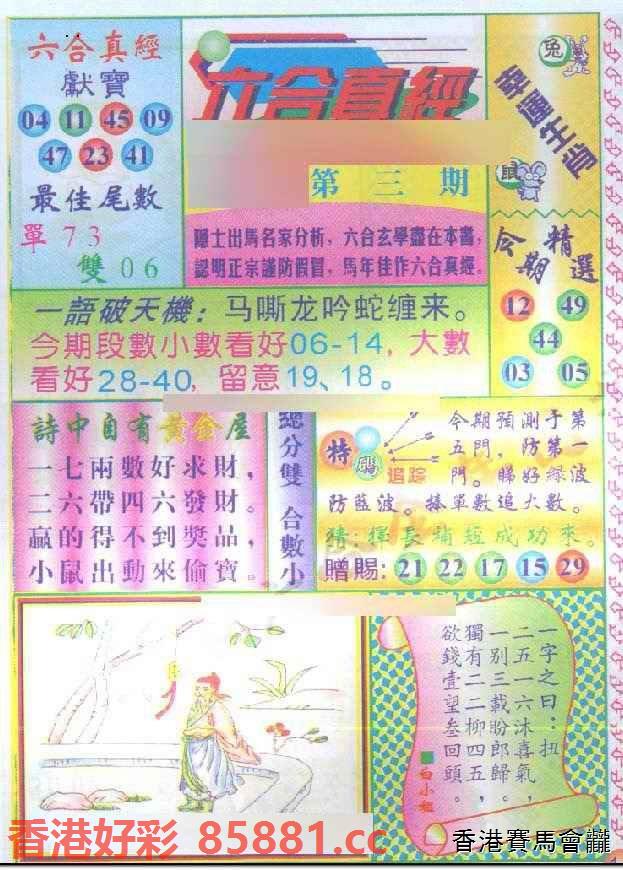 六合真經
獻寶
04 11 45 09
47 23 41
最佳尾數
單73
雙06
六合真經
第三期
隱士出馬名家分析，六合玄學盡在本書，
認明正宗謹防假冒，馬年佳作六合真經。
兔
幸運生肖
鼠
今期精選
12 49
44
03 05
一語破天機：马嘶龙吟蛇缠来。
今期段數小數看好06-14，大數
看好28-40，留意19、18。
詩中自有黃金屋
一七兩數好求財，
二六帶四六發財。
贏的得不到獎品，
小鼠出動來偷寶。
總分雙 合數小
特碼追踪
今期預測于第
五門，防第一
門。睇好綠波
防藍波。捧單數追大數。
成功來。
贈賜：21 22 17 15 29
一字之曰：扭
二五一六沐喜氣，
一别三載盼郎歸。
獨有二二柳四五，
欲錢壹望叁回頭。
白小姐
香港好彩 85881.cc
香港賽馬會